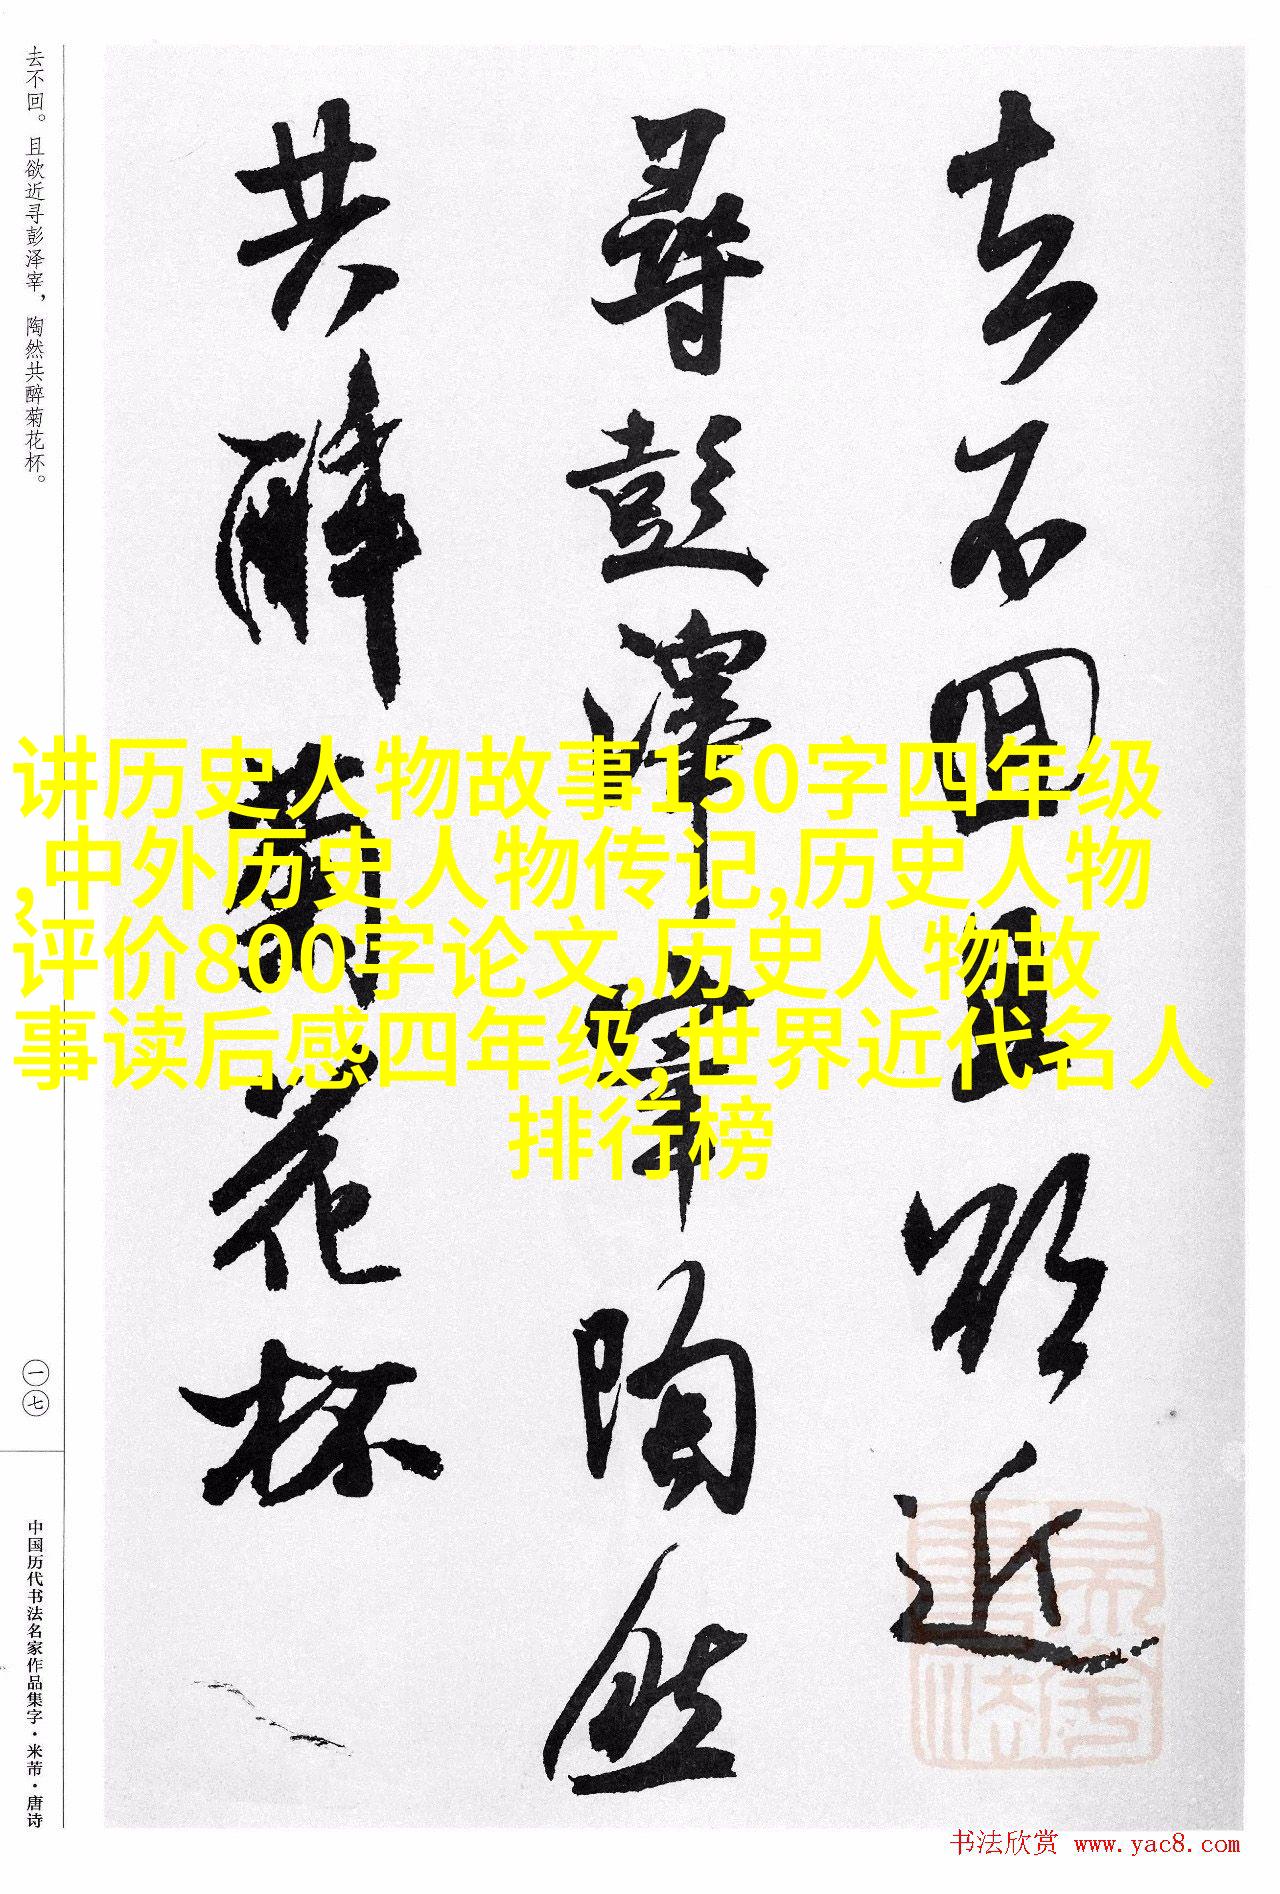 去不回且欲近
尋彭澤宰陶然
共醉菊花杯
去不回。且欲近寻彭泽宰，陶然共醉菊花杯。
一七
中国历代书法名家作品集字·米芾·唐诗
讲历史人物故事150字四年级
,中外历史人物传记,历史人物
评价800字论文,历史人物故
事读后感四年级,世界近代名人
排行榜
书法欣赏 www.yac8.com